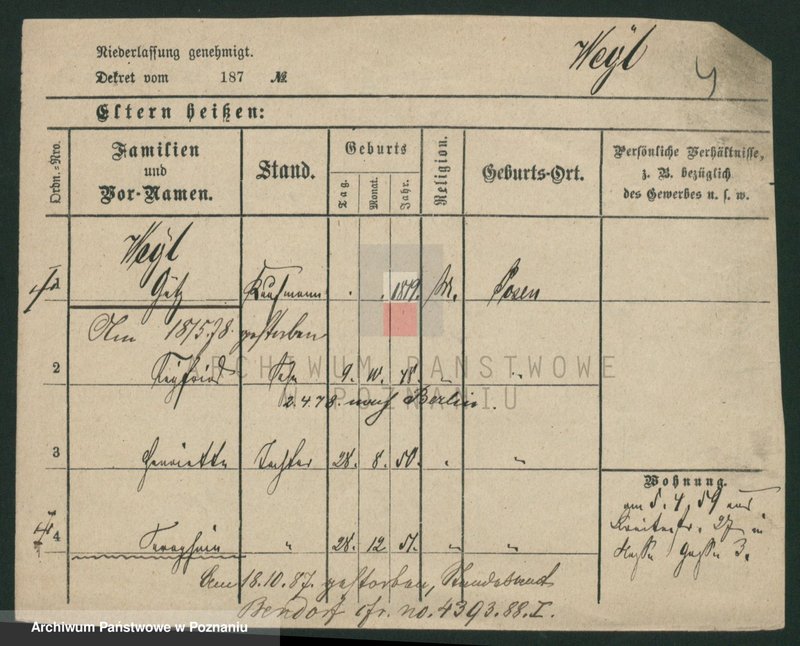 Niederlassung genehmigt.
Dekret vom 187 No.
Weyl
4
Eltern heißen:
Ordn.-Nro.
Familien
und
Vor-Namen.
Stand.
Geburts
Tag.
Monat.
Jahr.
Religion.
Geburts-Ort.
Persönliche Verhältnisse,
z. B. bezüglich
des Gewerbes u. s. w.
Weyl
1 Götz Kaufmann 1819. M. Posen
Am 18/5.78 gestorben
2 Siegfried Sohn 9. 10. 48. " "
2.4.78 nach Berlin.
3 Henriette Tochter 28. 8. 50. " "
Wohnung.
am 5. 4. 59 aus
27 in
Gasse 3.
4 " 28. 12 51. " "
Am 18.10.87. gestorben, Standesamt
Bendorf cfr. no. 4393.88.I.
ARCHIWUM PAŃSTWOWE
W POZNANIU
Archiwum Państwowe w Poznaniu